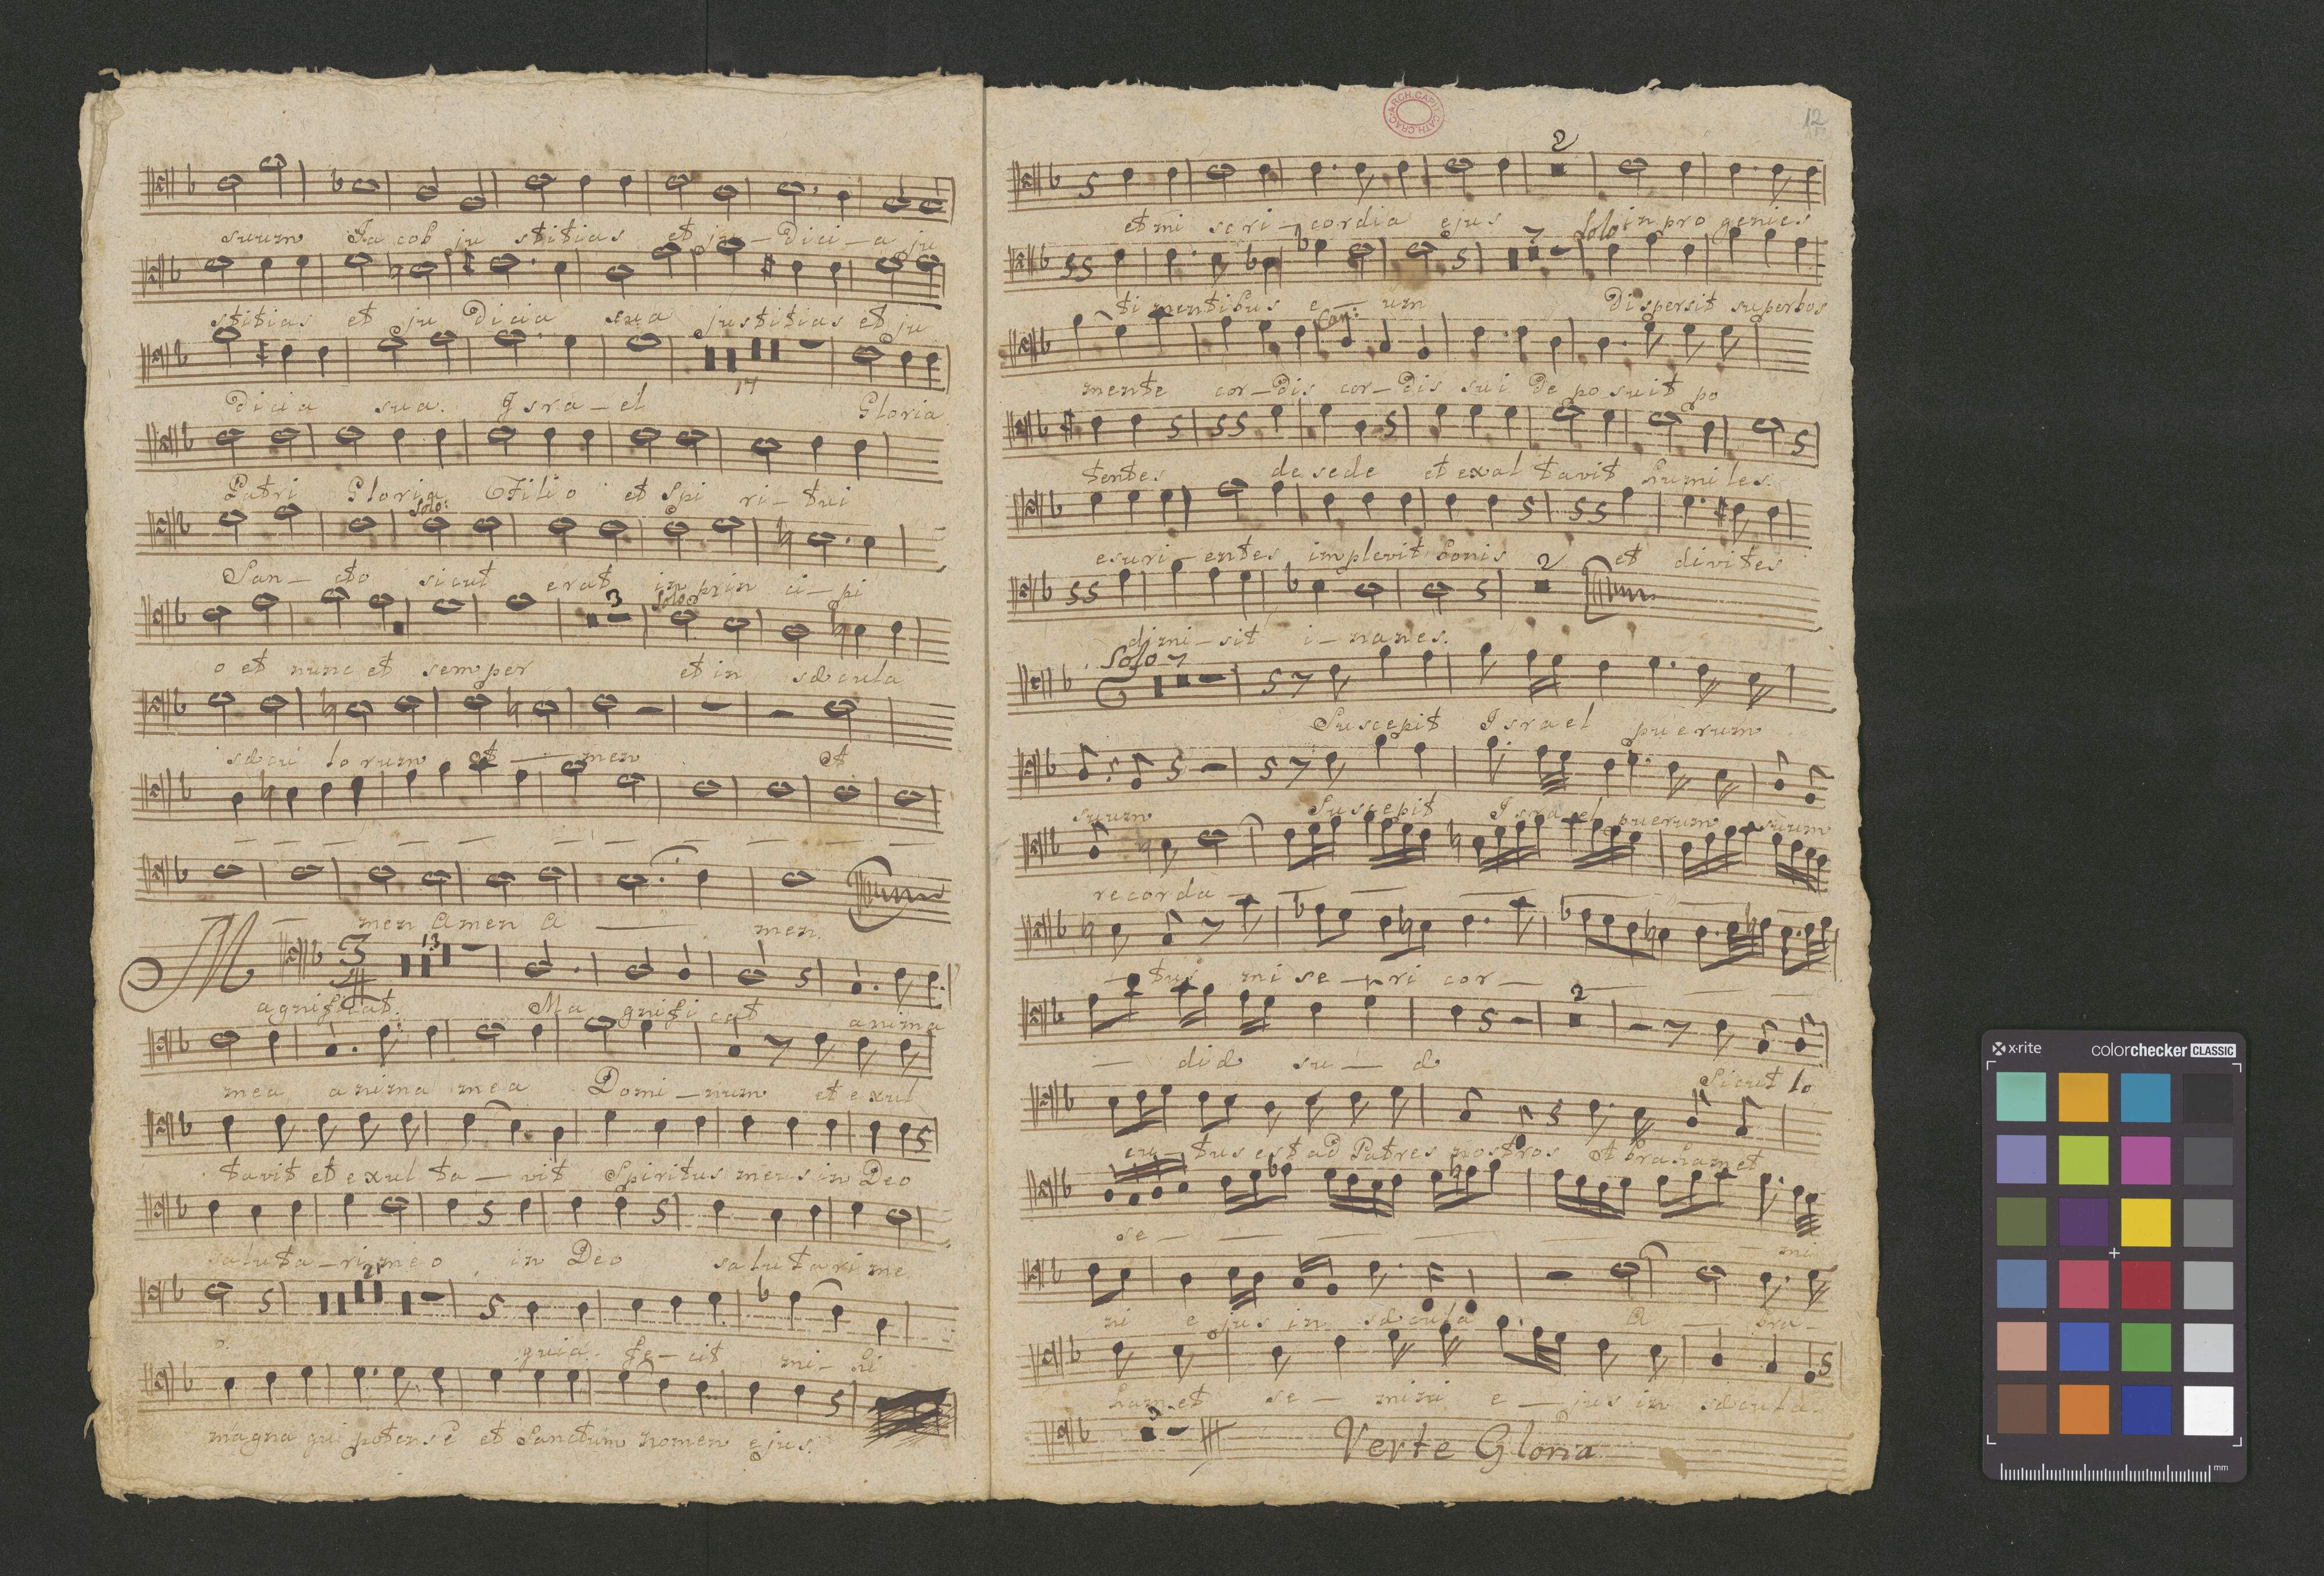 suum Jacob ju stitias et ju - dici - a ju
stitias et ju dicia sua justitias et ju
17
dicia sua. Isra - el Gloria
Patri Gloria Filio et Spi ri - tui
Solo:
San - cto sicut erat in prin ci - pi
3 Solo
o et nunc et semper et in sæcula
sæcu lo rum A - men A
men Amen A men.
13
Magnificat. Ma gnifi cat anima
mea anima mea Domi - num et exul
tavit et exul ta - vit Spiritus meus in Deo
saluta - ri meo in Deo salutari me
21
o. quia fe - cit mi - hi
magna qui potens e et Sanctum nomen ejus.
ARCH. CAPIT. CATH. CRAC.
12
2
et mi seri - cordia ejus in pro genies
7 Solo
timentibus e - um Dispersit superbos
Can:
mente cor - dis cor - dis sui Deposuit po
tentes de sede et exal tavit humiles.
esuri - entes implevit bonis et divites
2
dimi - sit i - nanes.
Solo 7
Suscepit Israel puerum
suum Suscepit Isra - el puerum suum
recorda
- tus mi se - ri cor -
2
- diæ su - æ Sicut lo
cu - tus est ad Patres nostros Abraham et
se - mi
ni ejus in sæcula A - bra -
ham et se - mini e - jus in sæcula.
3
Verte Gloria
x-rite colorchecker CLASSIC
mm